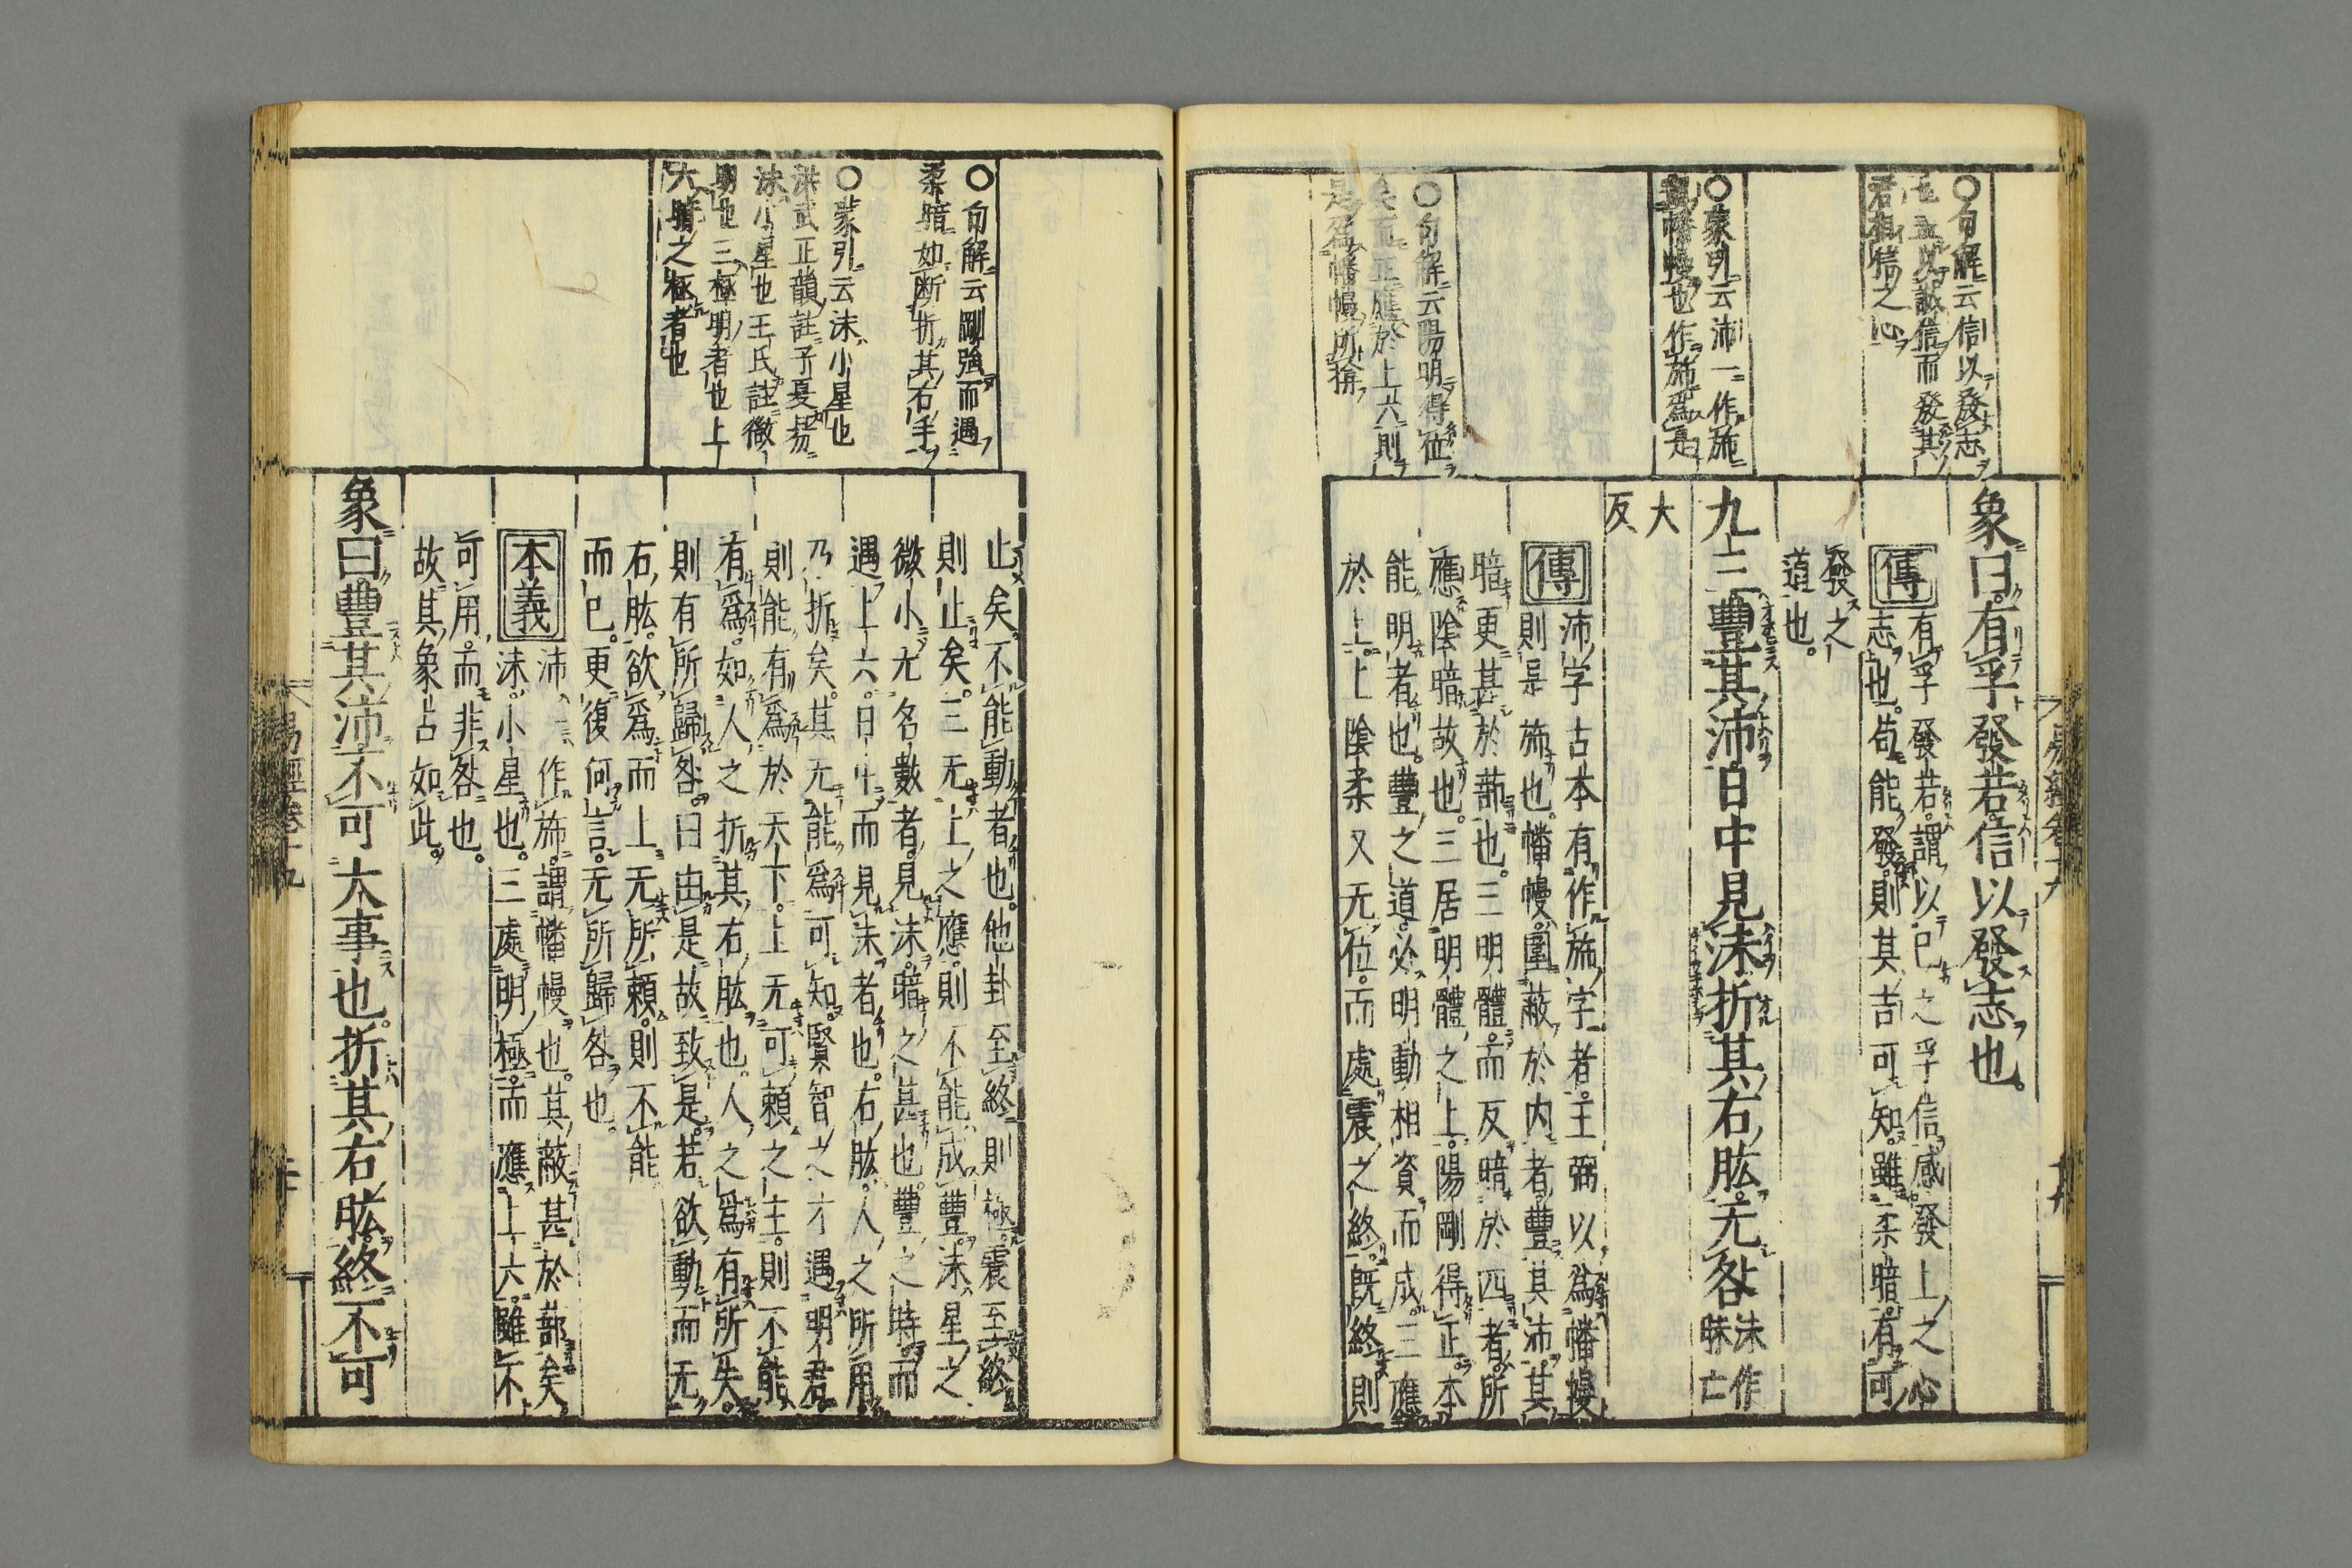 象曰。有孚發若。信以發志也。
傳
有孚發若。謂以己之孚信。感發上之心
志也。苟能發。則其吉可知。雖柔暗。有可
發之
道也。
九三豐其沛。日中見沬。折其右肱。无咎
沬作
昧亡
大
反
傳
沛字古本有作旆字者。王弼以爲幡幔
則是旆也。幡幔。圍蔽於内者。豐其沛。其
暗更甚於蔀也。三明體。而反暗於四者。所
應陰暗故也。三居明體之上。陽剛得正。本
能明者也。豐之道。必明動相資而成。三應
於上。上陰柔又无位。而處震之終。既終則
○句解云信以發志
也
以誠信而發其
君相信之心
○蒙引云沛一作旆
幡幔也作旆爲是
○句解云陽明得位
矣而正應於上六則
是爲幡幔所揜
止矣。不能動者也。他卦至終則極。震至終
則止矣。三无上之應。則不能成豐。沬星之
微小无名數者。見沬。暗之甚也。豐之時而
遇上六。日中而見沬者也。右肱。人之所用。
乃折矣。其无能爲可知。賢智之才。遇明君
則能有爲於天下。上无可賴之主。則不能
有爲。如人之折其右肱也。人之爲有所失。
則有所歸咎。曰由是故致是。若欲動而无
右肱。欲爲而上无所賴。則不能
而已。更復何言。无所歸咎也。
本義
沛一作旆。謂幡幔也。其蔽甚於蔀矣。
沬小星也。三處明極。而應上六。雖不
可用。而非咎也。
故其象占如此。
象曰豐其沛。不可大事也。折其右肱。終不可
○句解云剛強而遇
柔暗如断折其右手
○蒙引云沬小星也
洪武正韻註子夏易
沬小星也王氏註微
明也三極明者也上
六暗之極者也
易經卷十九